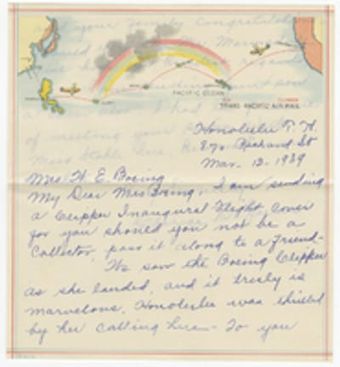 PACIFIC OCEAN
TRANS PACIFIC AIR MAIL
Honolulu T. H.
Richard St
Mar. 12-1939
Mrs. W. E. Boeing
My Dear Mrs Boeing, I am sending
a Clipper Inaugural Flight Cover
for you should you not be a
Collector, pass it along to a Friend-
We saw the Boeing Clipper
as she landed, and it truly is
marvelous. Honolulu was thrilled
by her calling here - To you